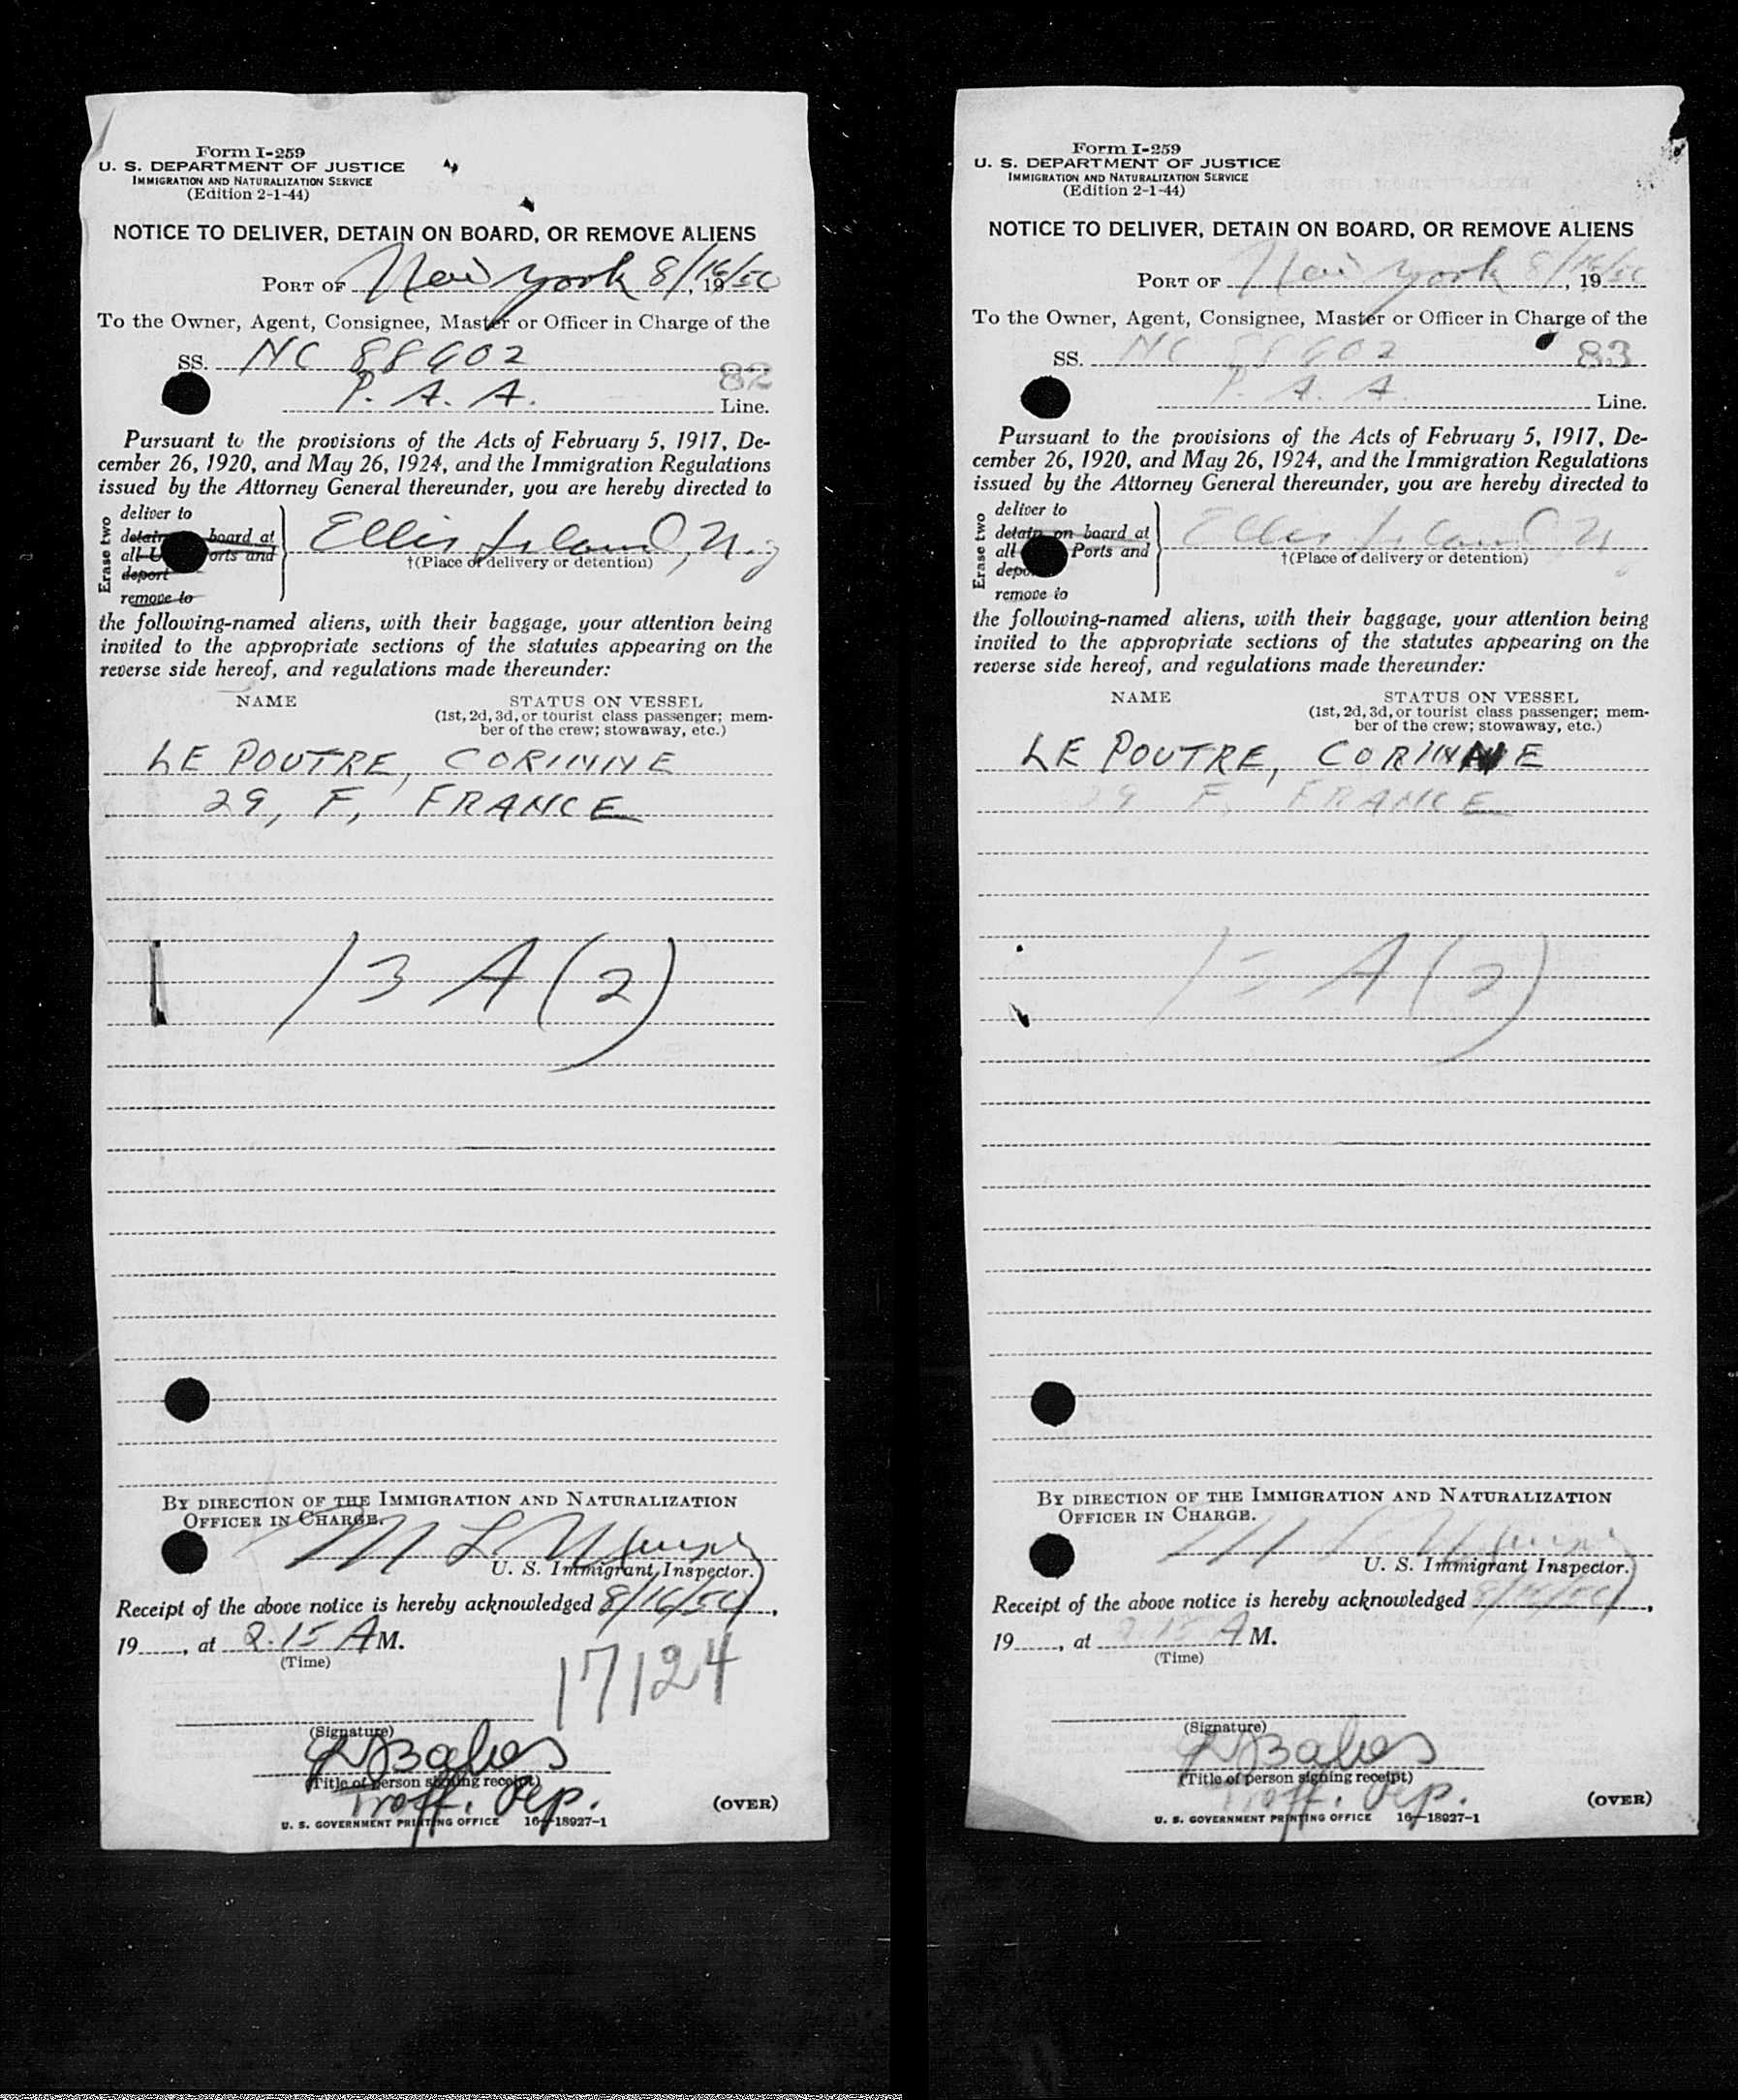 Form I-259
U. S. DEPARTMENT OF JUSTICE
IMMIGRATION AND NATURALIZATION SERVICE
(Edition 2-1-44)
NOTICE TO DELIVER, DETAIN ON BOARD, OR REMOVE ALIENS
PORT OF New York 8/16/50, 19
To the Owner, Agent, Consignee, Master or Officer in Charge of the
SS. NC 88902
82
P. A. A. Line.
Pursuant to the provisions of the Acts of February 5, 1917, De-
cember 26, 1920, and May 26, 1924, and the Immigration Regulations
issued by the Attorney General thereunder, you are hereby directed to
Erase two
deliver to
detain board at
all U orts and
deport
remove to
Ellis Island, N.y
†(Place of delivery or detention)
the following-named aliens, with their baggage, your attention being
invited to the appropriate sections of the statutes appearing on the
reverse side hereof, and regulations made thereunder:
NAME STATUS ON VESSEL
(1st, 2d, 3d, or tourist class passenger; mem-
ber of the crew; stowaway, etc.)
LE POUTRE, CORINNE
29, F, FRANCE
13 A (2)
BY DIRECTION OF THE IMMIGRATION AND NATURALIZATION
OFFICER IN CHARGE.
M L
U. S. Immigrant Inspector.
Receipt of the above notice is hereby acknowledged 8/16/50,
19, at 2.15 A M.
(Time)
17124
(Signature)
(Title of person signing receipt)
Traff. Rep.
(OVER)
U. S. GOVERNMENT PRINTING OFFICE 16—18927-1
Form I-259
U. S. DEPARTMENT OF JUSTICE
IMMIGRATION AND NATURALIZATION SERVICE
(Edition 2-1-44)
NOTICE TO DELIVER, DETAIN ON BOARD, OR REMOVE ALIENS
PORT OF New York 8/16/50, 19
To the Owner, Agent, Consignee, Master or Officer in Charge of the
SS. NC 88902
83
P. A. A. Line.
Pursuant to the provisions of the Acts of February 5, 1917, De-
cember 26, 1920, and May 26, 1924, and the Immigration Regulations
issued by the Attorney General thereunder, you are hereby directed to
Erase two
deliver to
detain on board at
all Ports and
depo
remove to
Ellis Island, N
†(Place of delivery or detention)
the following-named aliens, with their baggage, your attention being
invited to the appropriate sections of the statutes appearing on the
reverse side hereof, and regulations made thereunder:
NAME STATUS ON VESSEL
(1st, 2d, 3d, or tourist class passenger; mem-
ber of the crew; stowaway, etc.)
LE POUTRE, CORINNE
29 F, FRANCE
13 A (2)
BY DIRECTION OF THE IMMIGRATION AND NATURALIZATION
OFFICER IN CHARGE.
M L
U. S. Immigrant Inspector.
Receipt of the above notice is hereby acknowledged 8/16/50,
19, at 2.15 A M.
(Time)
(Signature)
(Title of person signing receipt)
Traff. Rep.
(OVER)
U. S. GOVERNMENT PRINTING OFFICE 16—18927-1